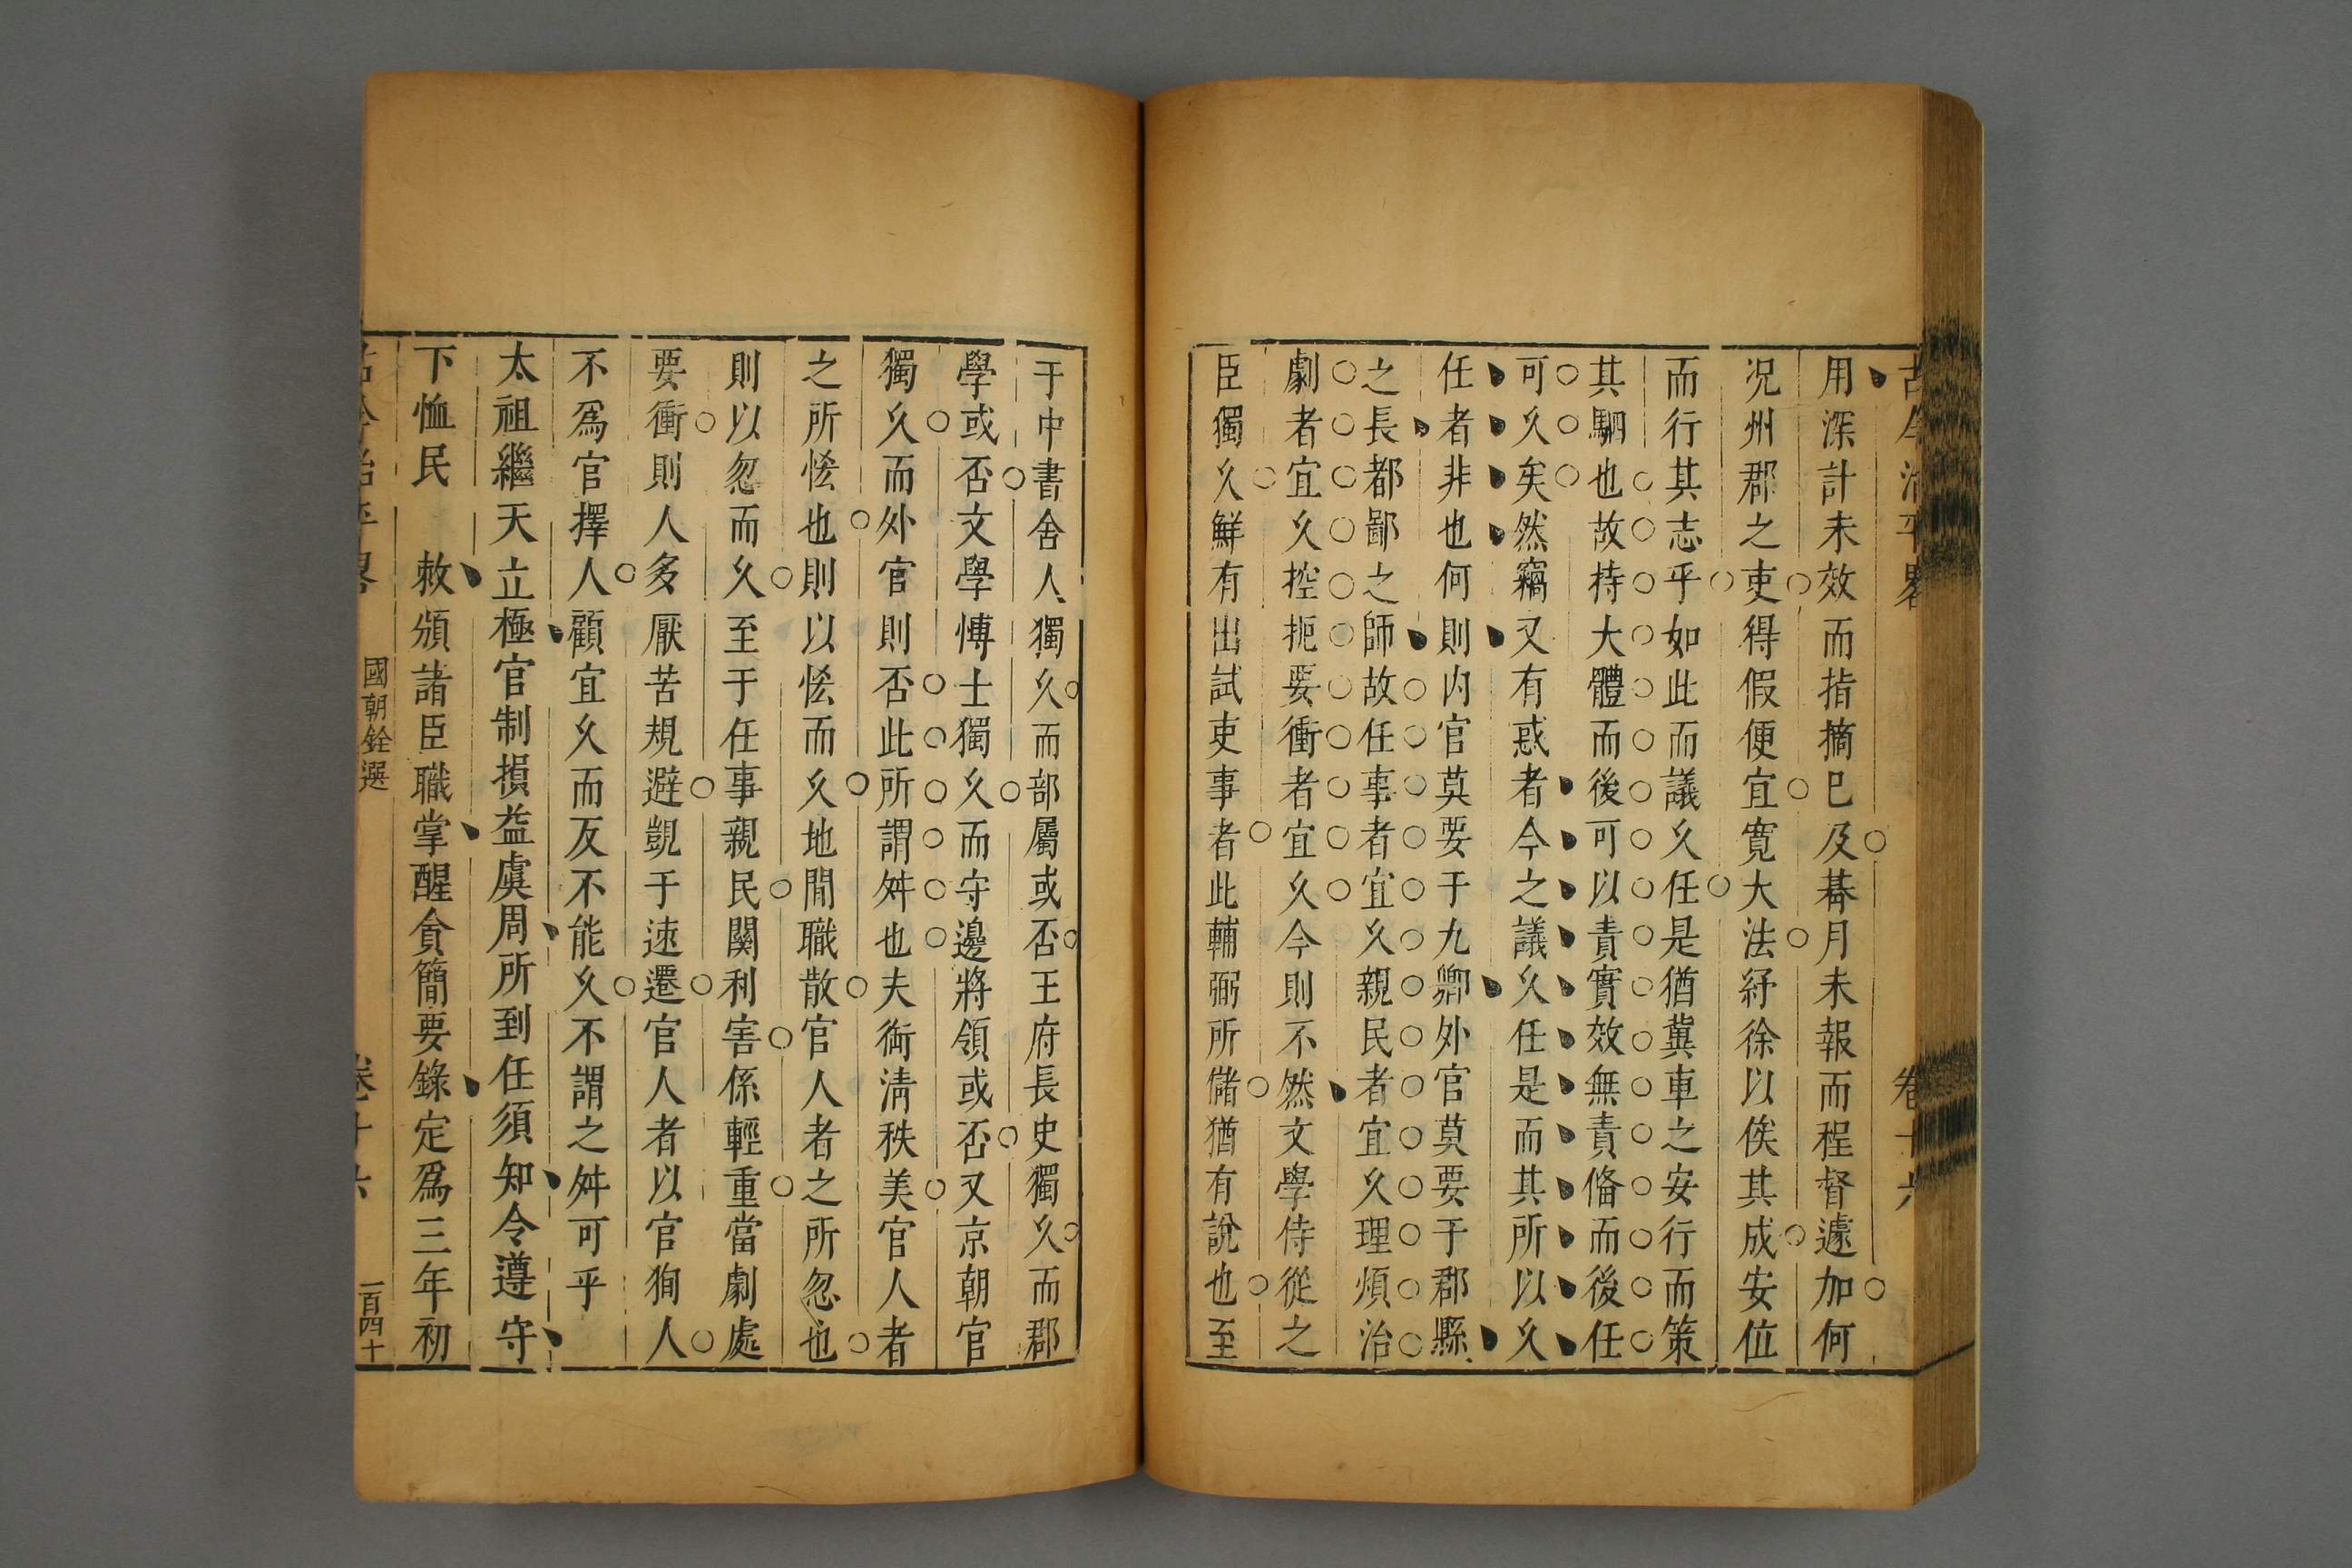 古今治平畧　卷十六
用深計未效而指摘已及朞月未報而程督遽加何
況州郡之吏得假便宜寬大法紓徐以俟其成安位
而行其志乎如此而議久任是猶冀車之安行而策
其駟也故持大體而後可以責實效無責偹而後任
可久矣然竊又有惑者今之議久任是而其所以久
任者非也何則内官莫要于九卿外官莫要于郡縣
之長都鄙之師故任事者宜久親民者宜久理煩治
劇者宜久控扼要衝者宜久今則不然文學侍從之
臣獨久鮮有出試吏事者此輔弼所儲猶有說也至
于中書舍人獨久而部屬或否王府長史獨久而郡
學或否文學博士獨久而守邊將領或否又京朝官
獨久而外官則否此所謂舛也夫銜清秩美官人者
之所恡也則以恡而久地閒職散官人者之所忽也
則以忽而久至于任事親民關利害係輕重當劇處
要衝則人多厭苦規避覬于速遷官人者以官狥人
不爲官擇人顧宜久而反不能久不謂之舛可乎
太祖繼天立極官制損益虞周所到任須知令遵守
下恤民　敕頒諸臣職掌醒貪簡要錄定爲三年初
古今治平畧　國朝銓選　卷十六　一百四十